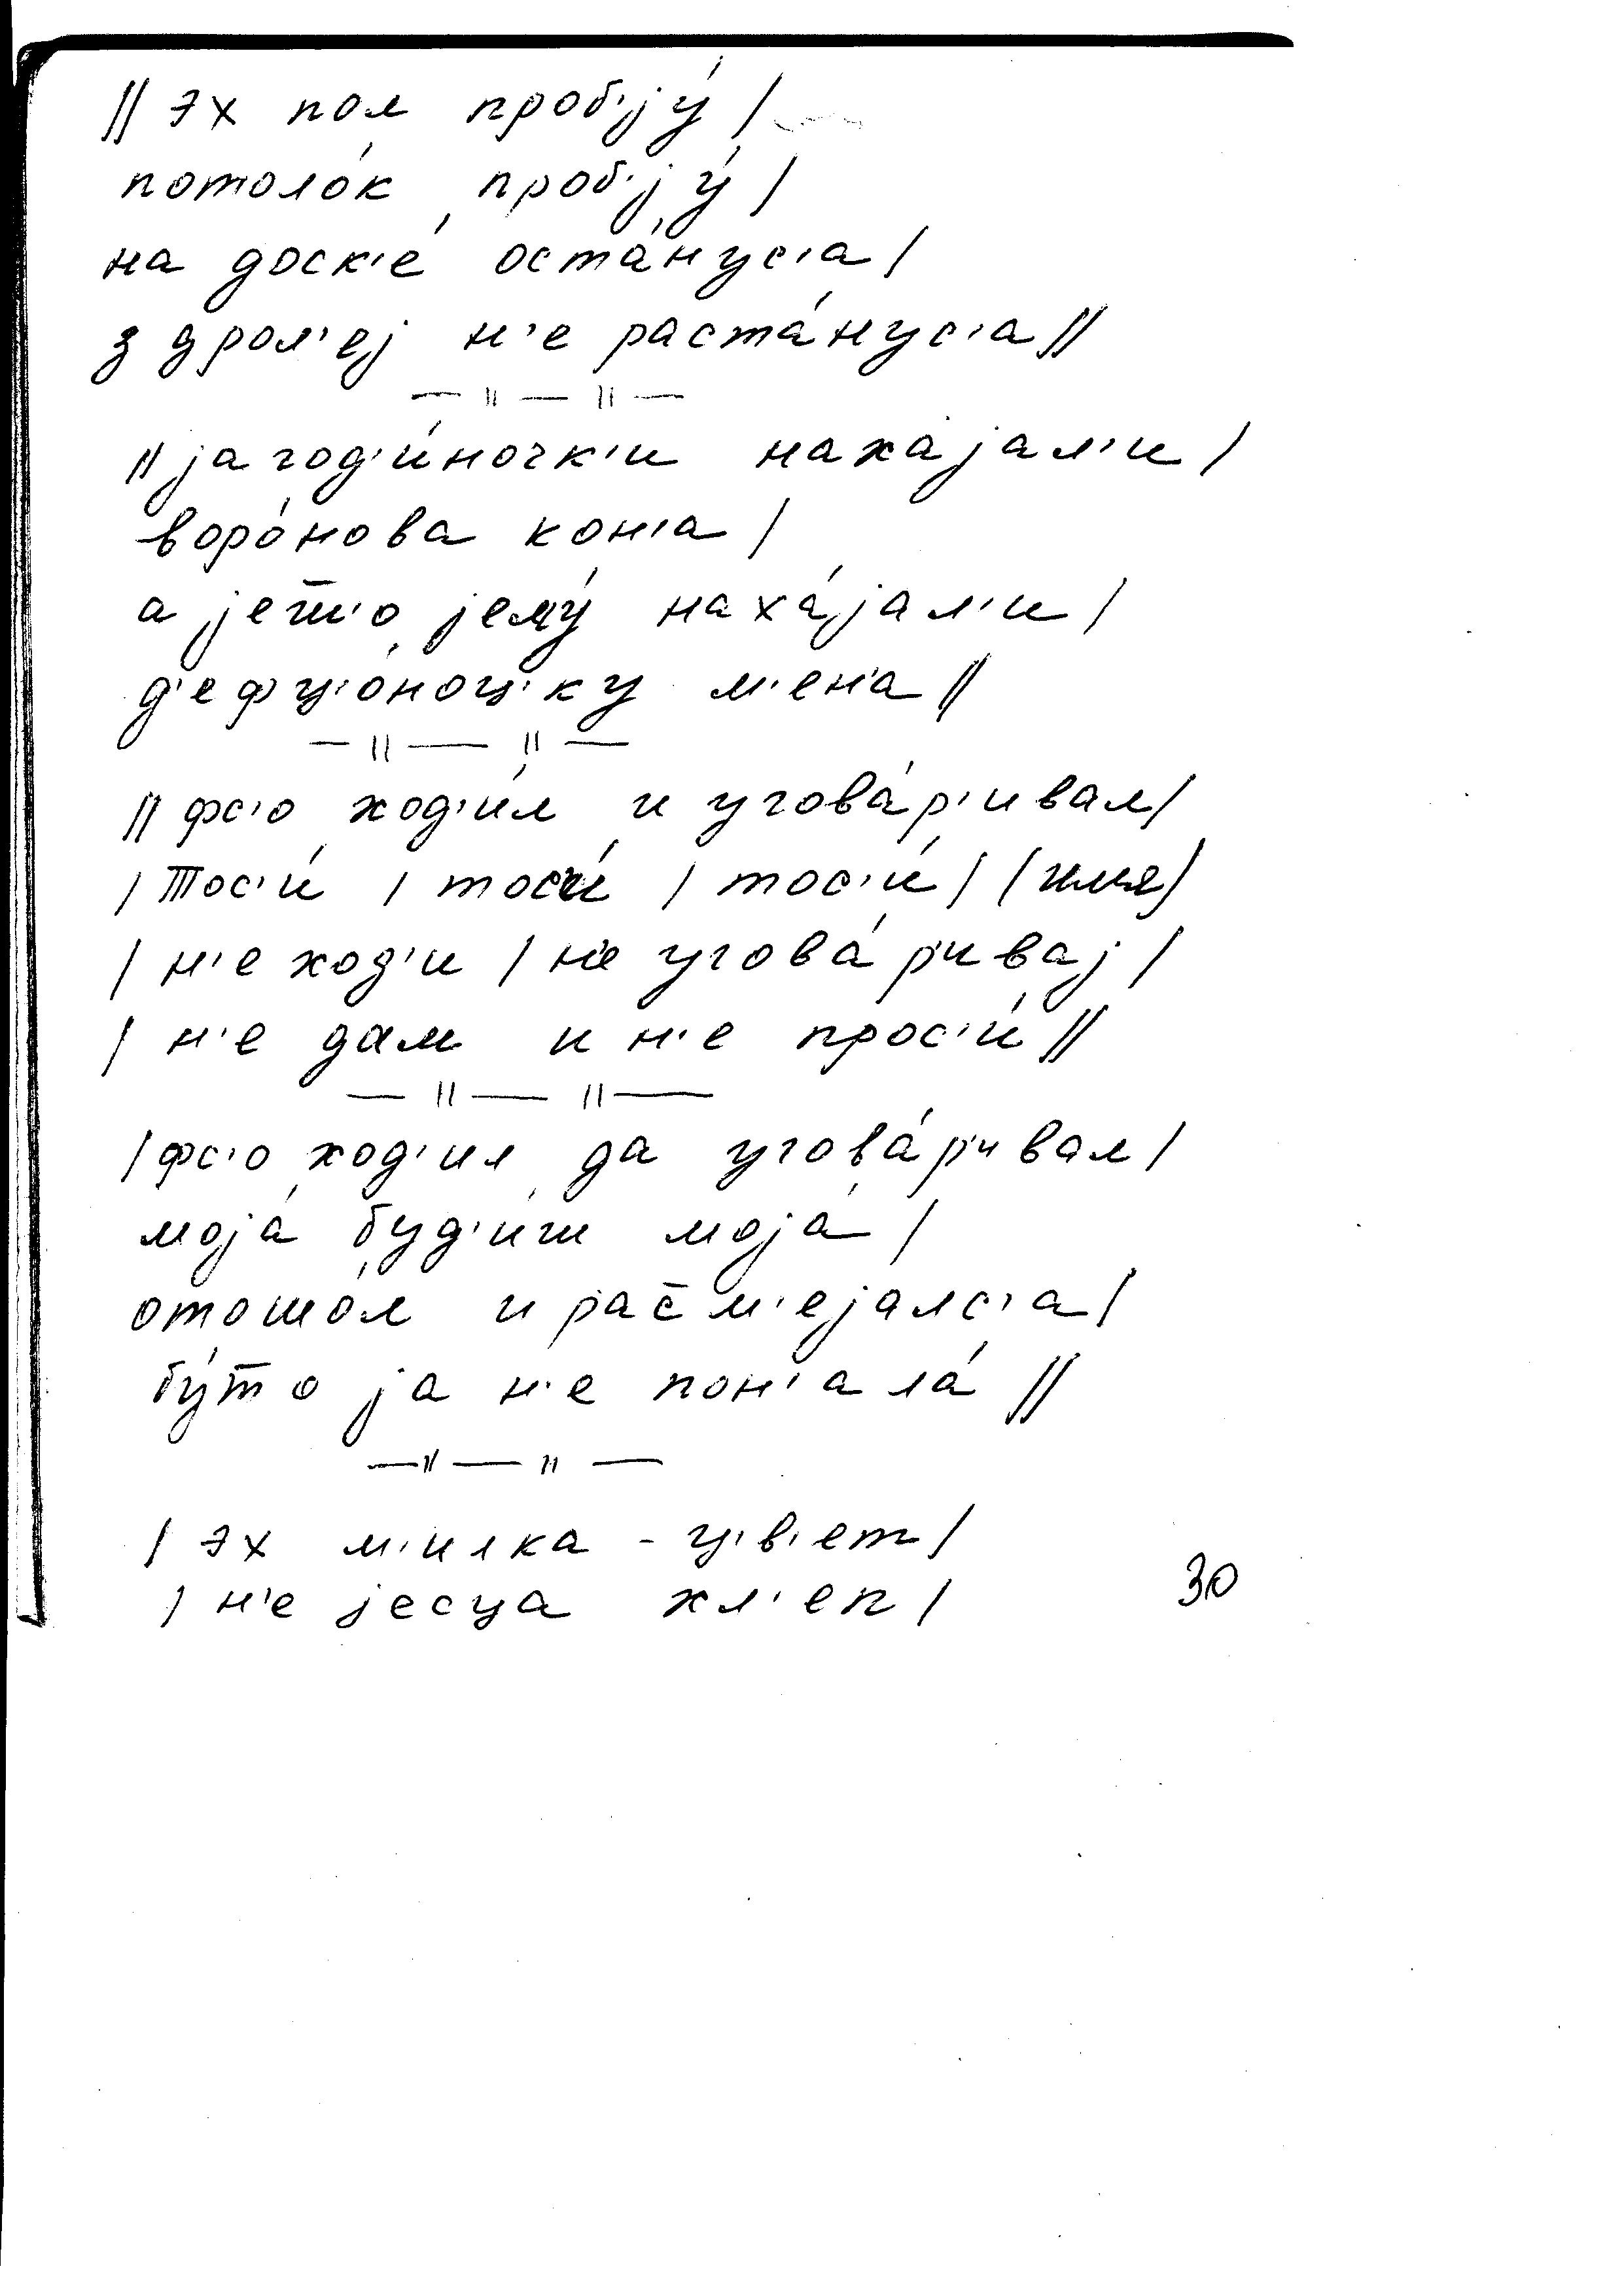 || эх пол проб'jу́ |
потоло́к проб'jу́ |
на доск'е́ оста́нус'а |
з дрол'еj н'е раста́нус'а ||
— || — || —
|| jагод'и́ночк'и нахаjал'и |
воро́нова кон'а |
а jет̄'о jему́ наха́jал'и |
д'ефц'о́ноц'ку м'ен'а ||
— || — || —
|| фс'о ход'и́л и угова́р'ивал |
| Тос'и́ | тос'и́ | тос'и́ | (имя)
| н'е ход'и | н'е угова́р'иваj |
| н'е дам и н'е прос'и́ ||
— || — || —
| фс'о ход'ил да угова́р'ивал |
моjа́ буд'и́ш моjа́ |
отошо́л и рас̄м'еjалс'а |
бу́т̄о jа н'е пон'ала́ ||
— || — || —
| эх м'илка - ц'в'ет |
| н'е jесца хл'еп |
30